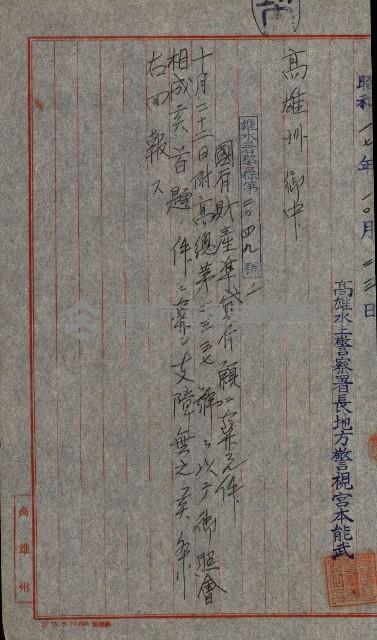 昭和一七年一〇月二三日
高雄水上警察署長地方警視宮本能武
高雄州御中
雄水署警保第二〇四九號ノ二
國有財產準貸付願ニ關スル件
十月二十二日附高總第二三三七號ヲ以テ御照會
相成候首題ノ件ニ
支障無之候條
右回報ス
高雄州